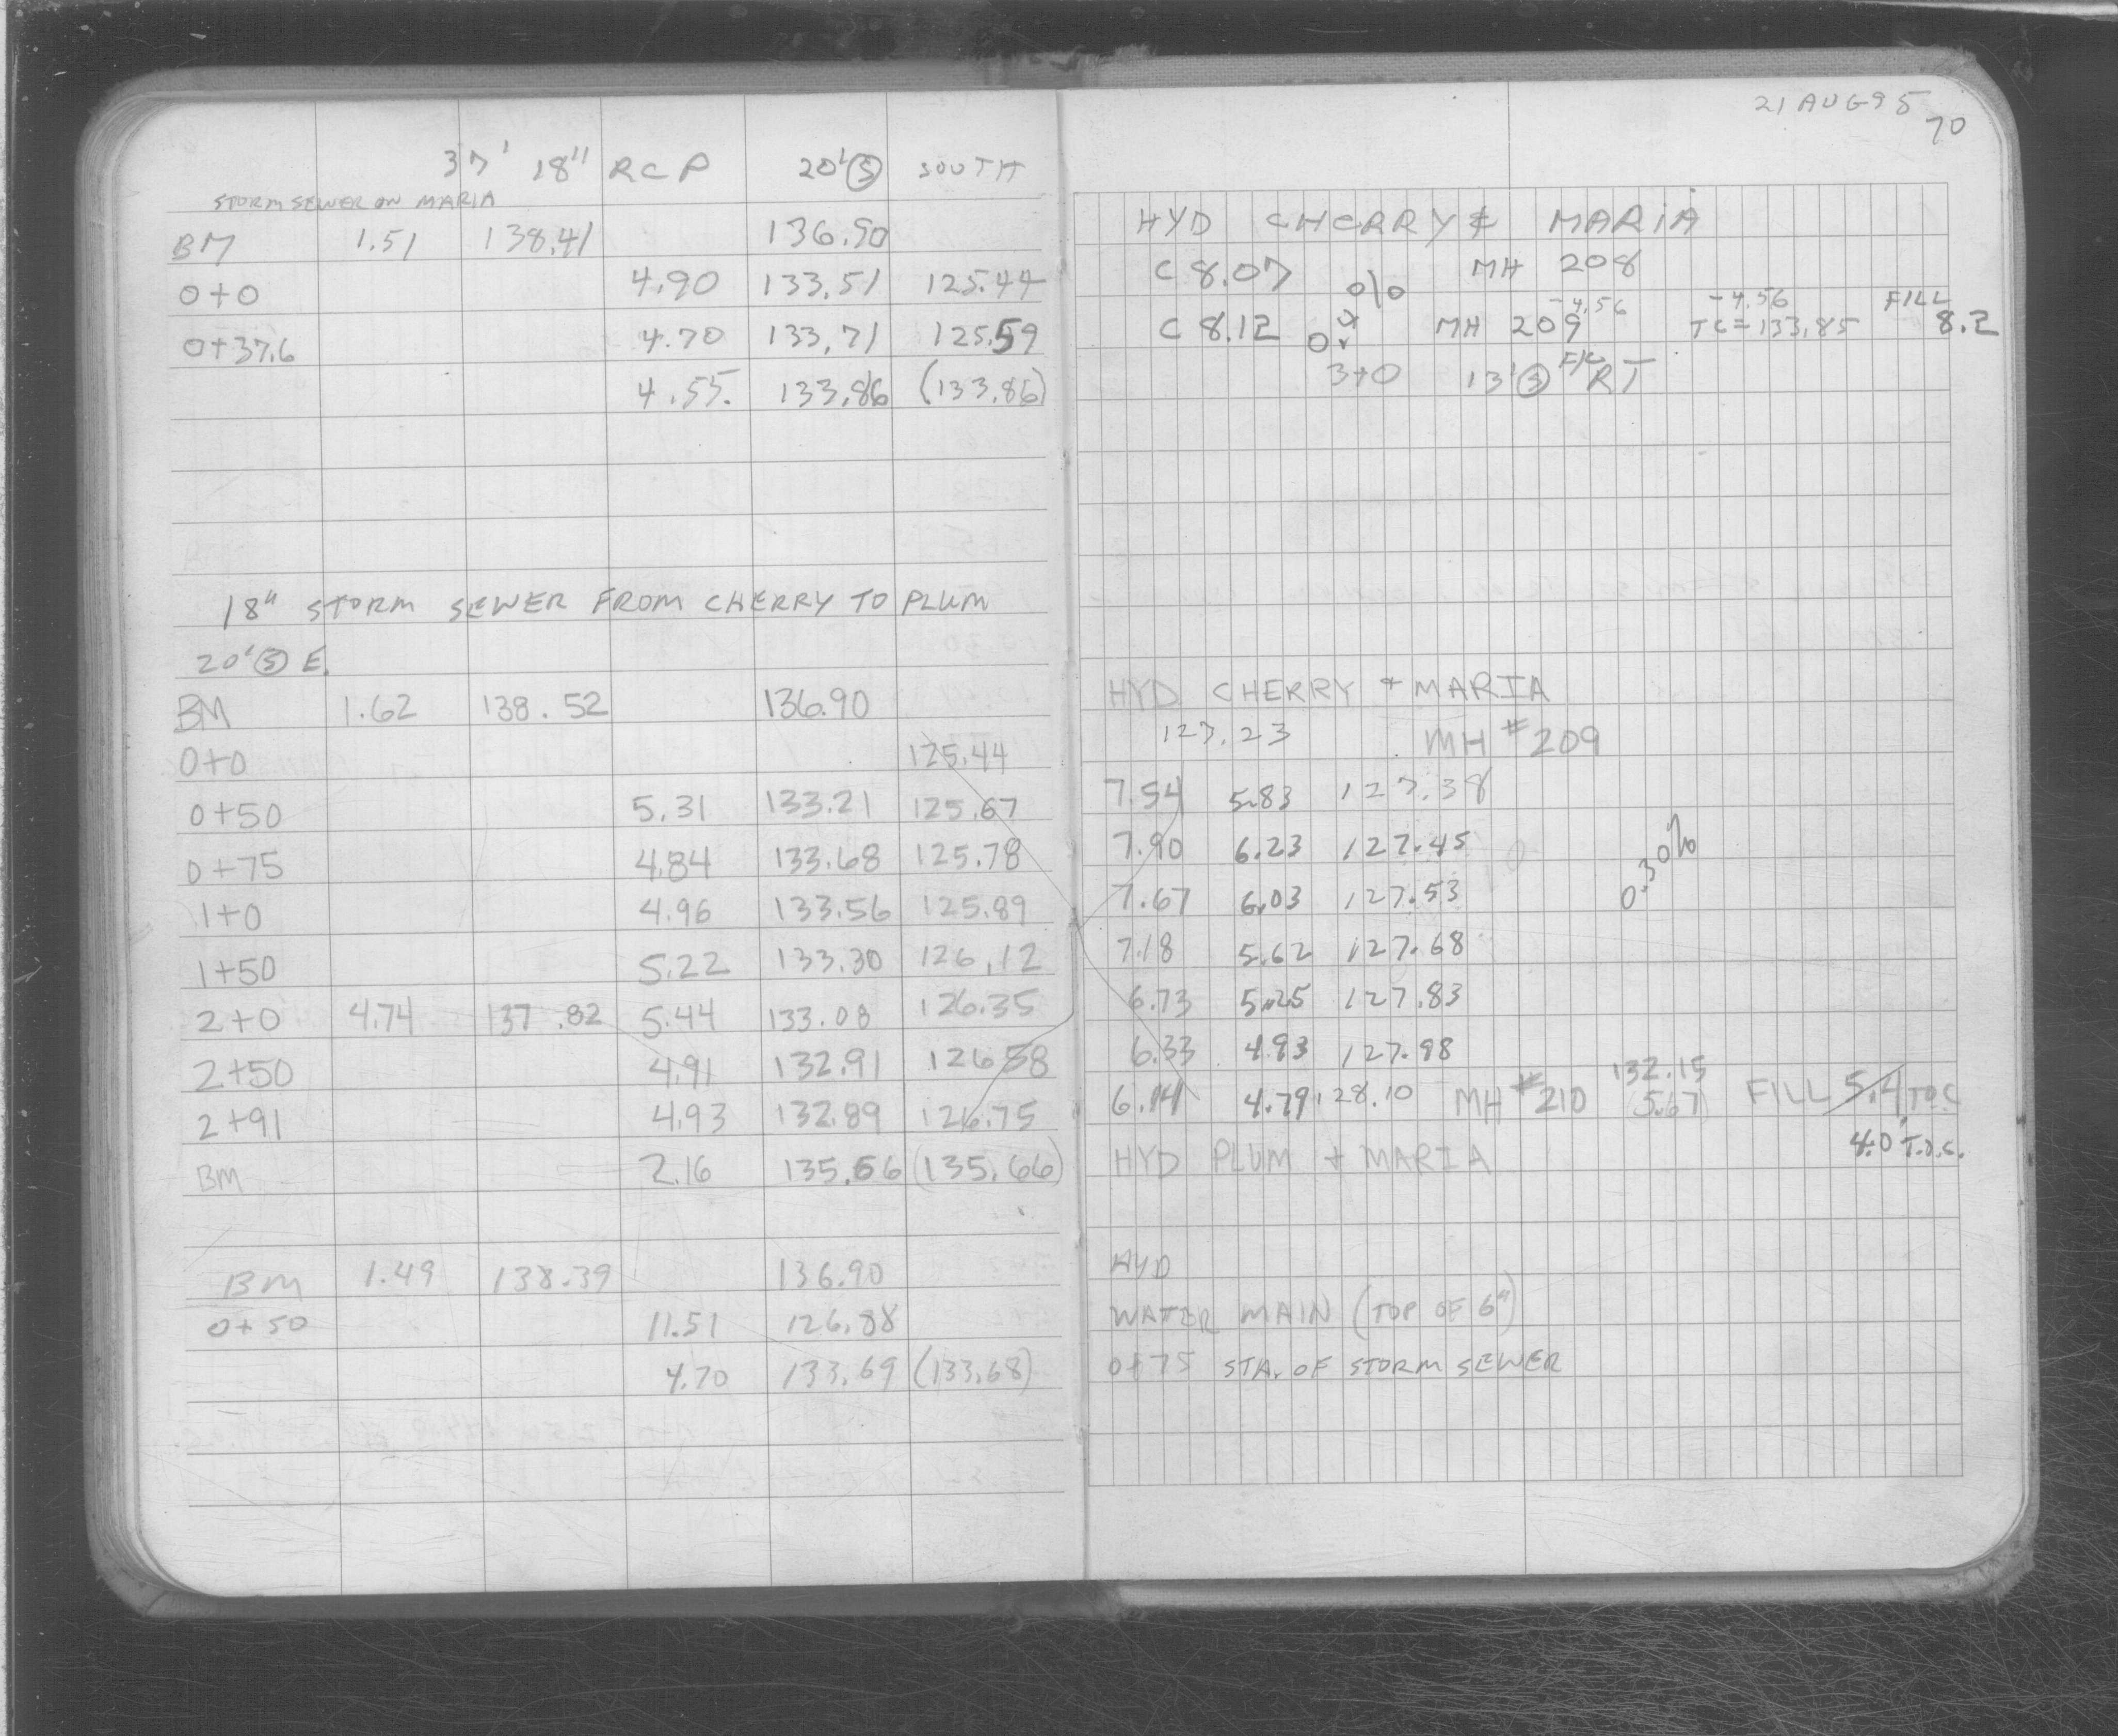 37' 18" RCP 20'Ⓢ SOUTH
STORM SEWER ON MARIA
BM 1.51 138.41 136.90
0+0 4.90 133.51 125.44
0+37.6 4.70 133.71 125.59
4.55 133.86 (133.86)
18" STORM SEWER FROM CHERRY TO PLUM
20'Ⓢ E.
BM 1.62 138.52 136.90
0+0 125.44
0+50 5.31 133.21 125.67
0+75 4.84 133.68 125.78
1+0 4.96 133.56 125.89
1+50 5.22 133.30 126.12
2+0 4.74 137.82 5.44 133.08 126.35
2+50 4.91 132.91 126.58
2+91 4.93 132.89 126.75
BM 2.16 135.66 (135.66)
BM 1.49 138.39 136.90
0+50 11.51 126.88
4.70 133.69 (133.68)
21 AUG 95
70
HYD CHERRY & MARIA
C 8.07 MH 208
C 8.12 MH 209 -4.56 -4.56 TC=133.85 FILL 8.2
3+0 13'Ⓢ F/C RT
HYD CHERRY + MARIA
127.23 MH #209
7.54 5.83 127.38
7.90 6.23 127.45
7.67 6.03 127.53
0.30%
7.18 5.62 127.68
6.73 5.25 127.83
6.33 4.93 127.98
6.14 4.79 128.10 MH #210 132.15 (5.67) FILL 5.4 TOC
4.0' T.O.C.
HYD PLUM + MARIA
HYD
WATER MAIN (TOP OF 6")
0+75 STA. OF STORM SEWER